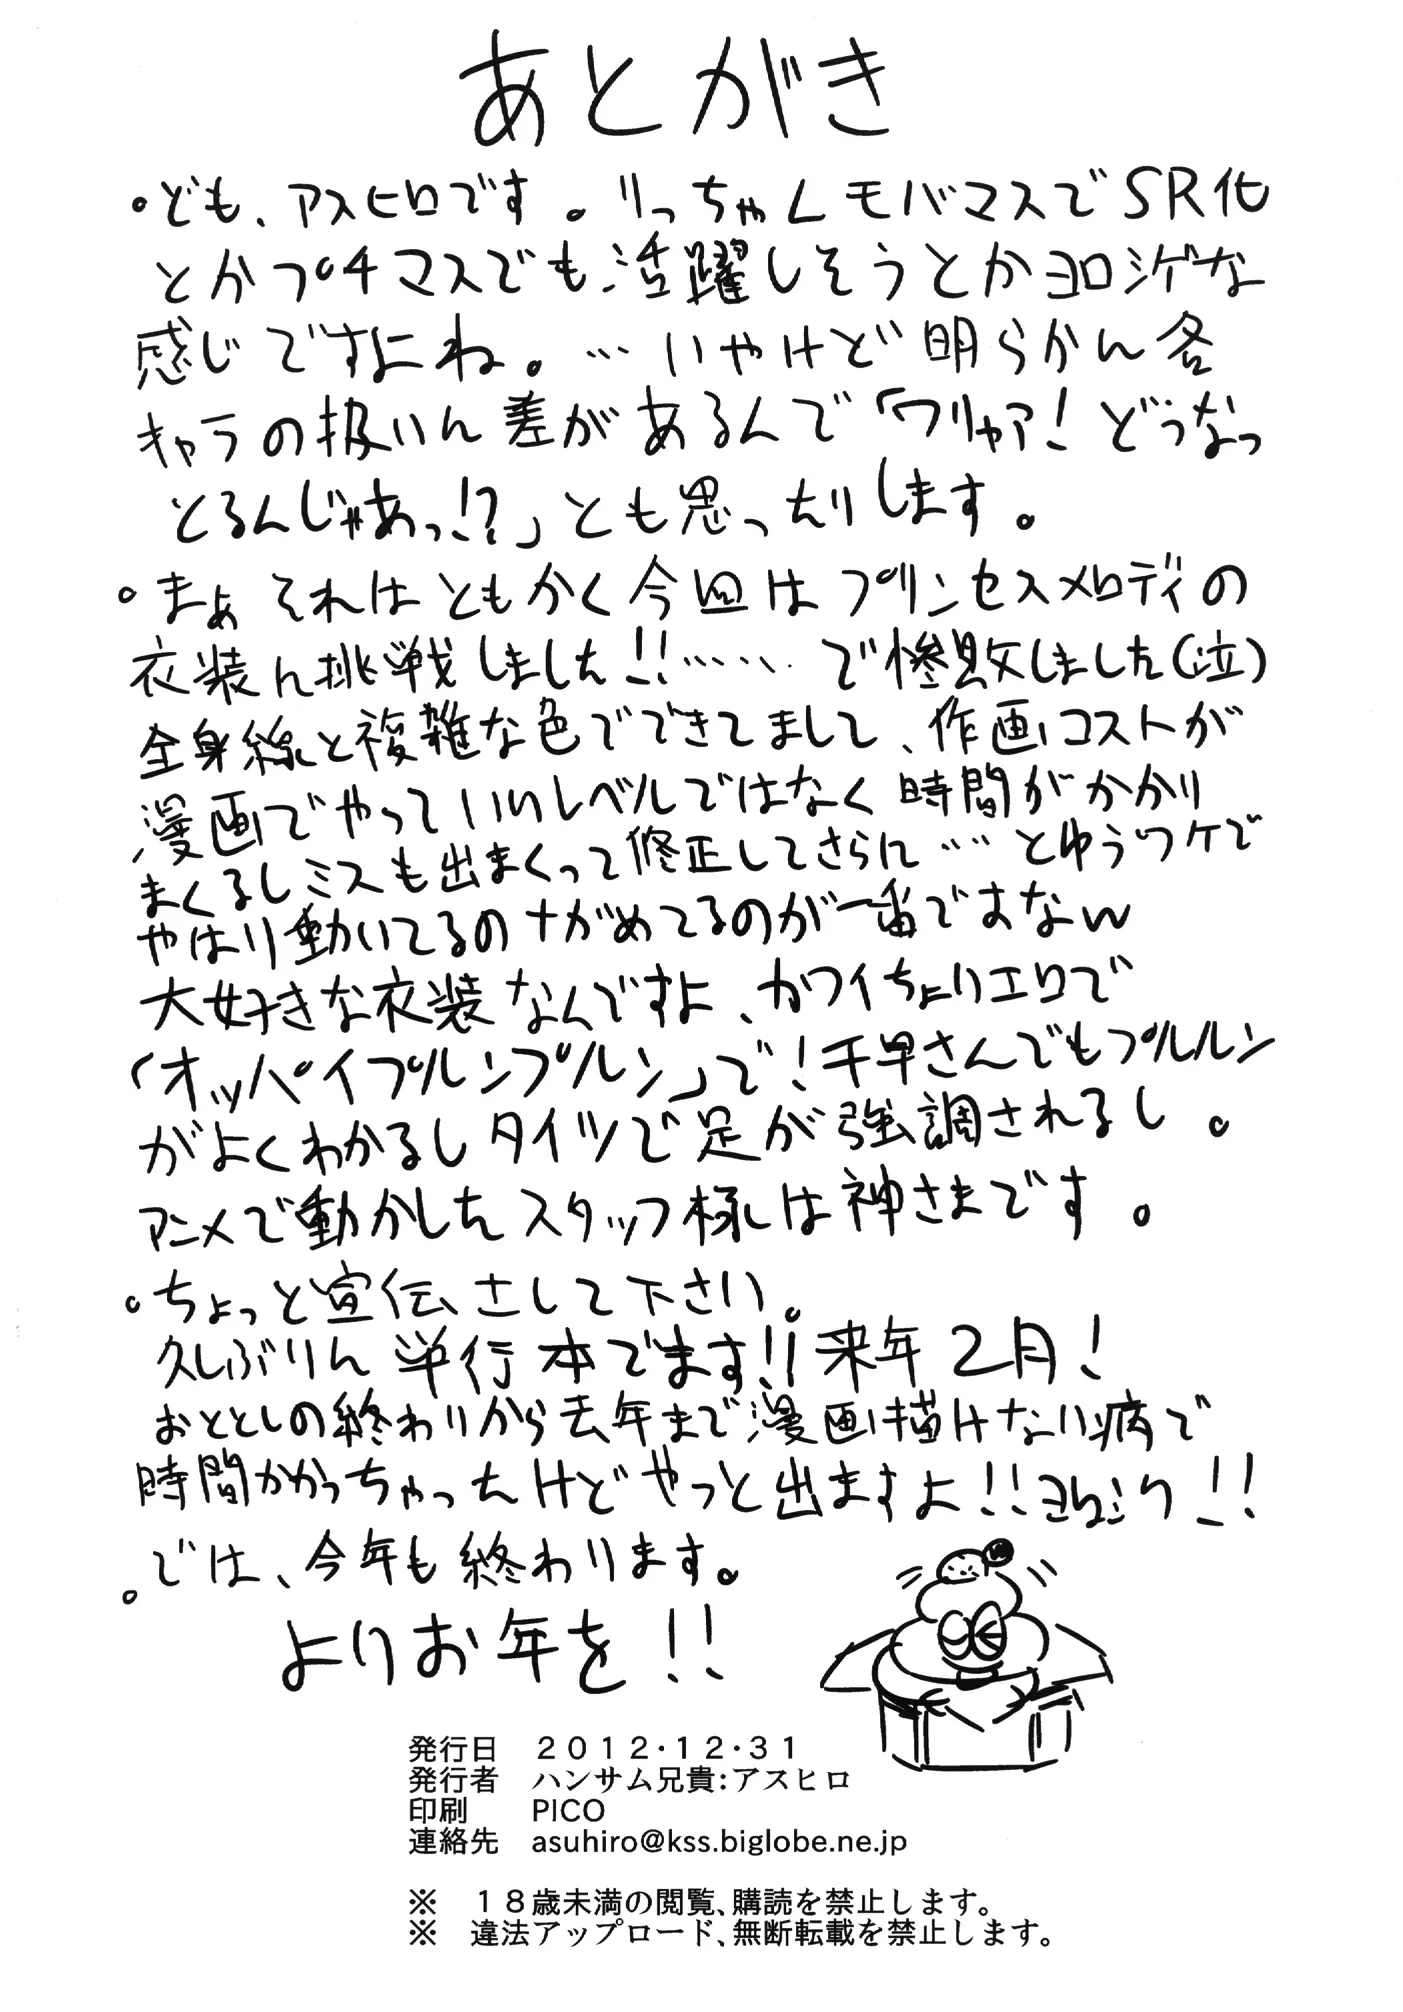 あとがき
。ども、アスヒロです。りっちゃんモバマスでSR化
とかプチマスでも活躍しそうとかヨロシゲな
感じですよね。…いやけど明らかん各
キャラの扱いん差があるんで「ワリャア！どうなっ
とるんじゃあっ!?」とも思ったりします。
。まぁそれはともかく今回はプリンセスメロディの
衣装ん挑戦しました!!……で惨敗しました(泣)
全身線と複雑な色でできてまして、作画コストが
漫画でやっていいレベルではなく時間がかかり
まくるしミスも出まくって修正してさらに…とゆうワケで
やはり動いてるのながめてるのが一番ですなw
大好きな衣装なんですよ、カワイちょりエロで
「オッパイプルンプルン」で！千早さんでもプルルン
がよくわかるしタイツで足が強調されるし。
アニメで動かしたスタッフ様は神さまです。
。ちょっと宣伝さして下さい。
久しぶりん単行本でます!!来年2月！
おととしの終わりから去年まで漫画描けない病で
時間かかっちゃったけどやっと出ますよ!!ヨロシク!!
。では、今年も終わります。
よりお年を!!
発行日　２０１２・１２・３１
発行者　ハンサム兄貴：アスヒロ
印刷　PICO
連絡先　asuhiro@kss.biglobe.ne.jp
※　１８歳未満の閲覧、購読を禁止します。
※　違法アップロード、無断転載を禁止します。